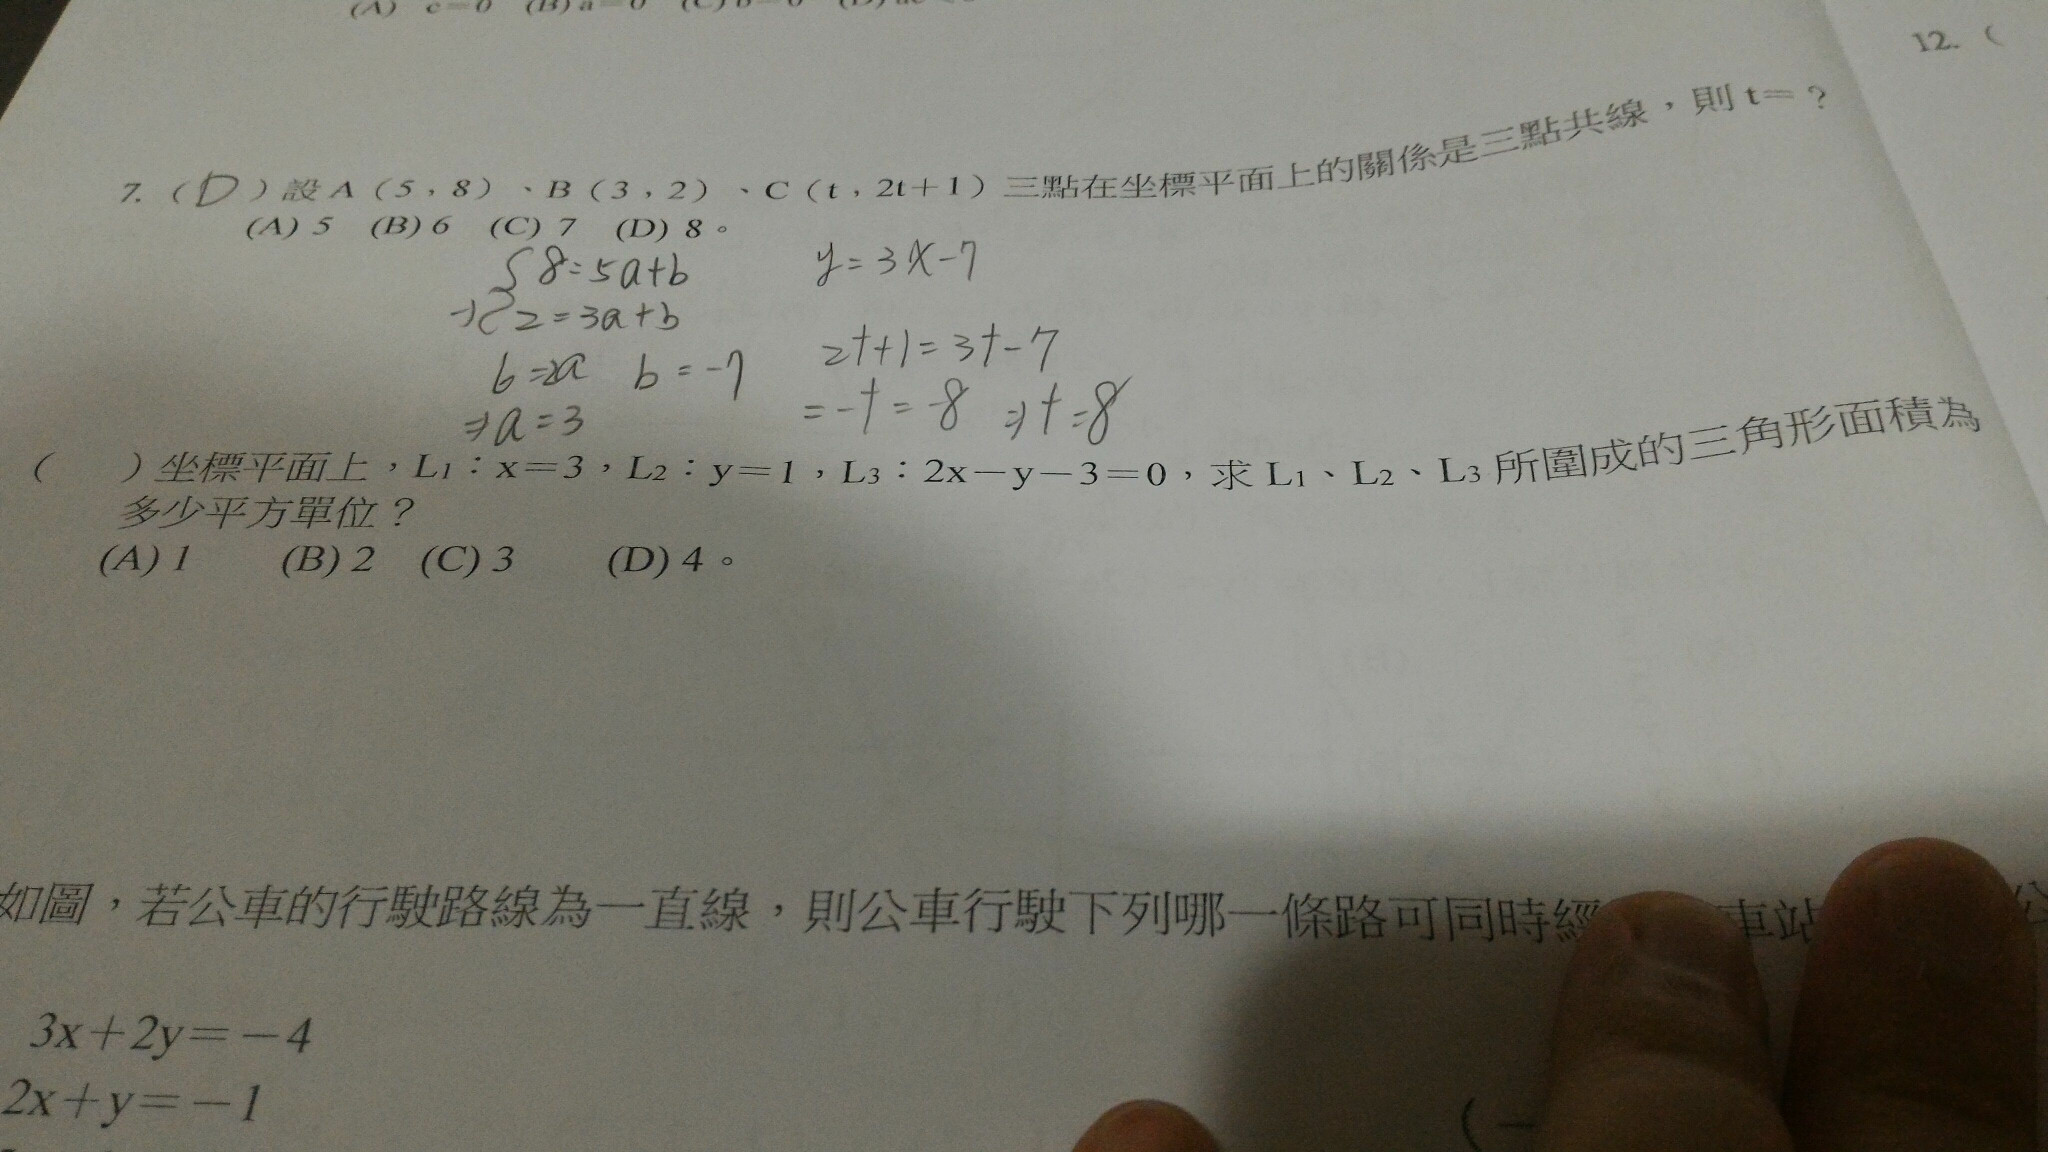 (A) c=0 (B) a=0 (C) b=0 (D)
12. (
7. ( D ) 設 A (5,8)、B (3,2)、C (t,2t+1) 三點在坐標平面上的關係是三點共線,則 t=?
(A) 5 (B) 6 (C) 7 (D) 8。
8=5a+b
→ 2=3a+b
6=2a b=-7
⇒a=3
y=3x-7
2t+1=3t-7
=-t=-8 ⇒t=8
( ) 坐標平面上,L1:x=3,L2:y=1,L3:2x-y-3=0,求 L1、L2、L3 所圍成的三角形面積為
多少平方單位?
(A) 1 (B) 2 (C) 3 (D) 4。
如圖,若公車的行駛路線為一直線,則公車行駛下列哪一條路可同時經 車站
3x+2y=-4
2x+y=-1